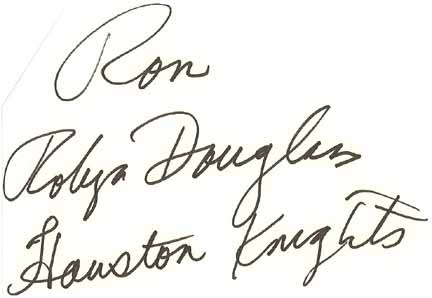 Ron
Robyn Douglass
Houston Knights